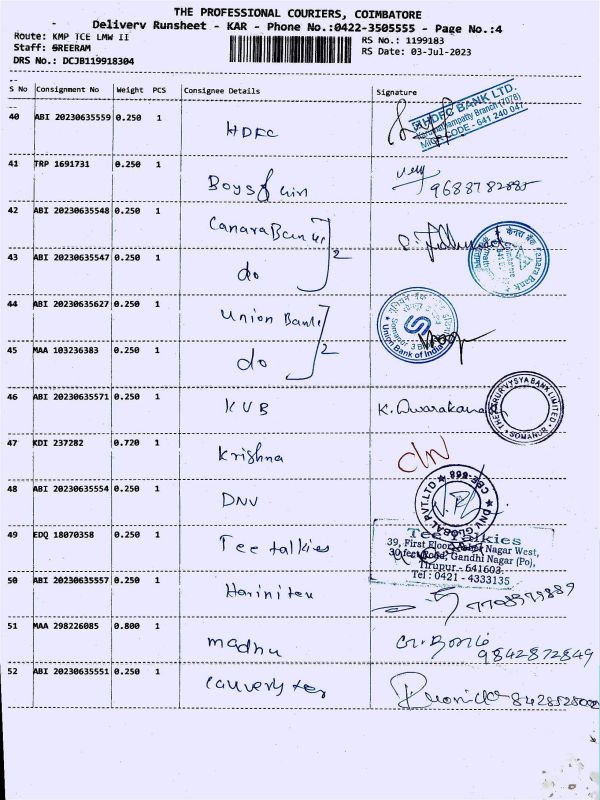 THE PROFESSIONAL COURIERS, COIMBATORE
Delivery Runsheet - KAR - Phone No.:0422-3505555 - Page No.:4
Route: KMP TCE LMW II
RS No.: 1199183
Staff: SREERAM
RS Date: 03-Jul-2023
DRS No.: DCJB119918304
S No Consignment No Weight PCS Consignee Details Signature
40 ABI 20230635559 0.250 1 HDFC
HDFC BANK LTD.
Branch (7078)
CODE - 641 240 047
41 TRP 1691731 0.250 1 Boys
42 ABI 20230635548 0.250 1 Canara Bank 2
केनरा बैंक
Canara Bank
43 ABI 20230635547 0.250 1 do
44 ABI 20230635627 0.250 1 Union Bank 2
Union Bank of India
45 MAA 103236383 0.250 1 do
46 ABI 20230635571 0.250 1 KVB K. Dwarakanath
THE KARUR VYSYA BANK LIMITED
SOMANUR
47 KDI 237282 0.720 1 Krishna
48 ABI 20230635554 0.250 1 DNV
DNV GLOBAL PVT.LTD
CBE-668
49 EDQ 18070358 0.250 1 Tee talkies
Tee Talkies
39, First Floor, Nagar West,
30 feet Road, Gandhi Nagar (Po),
Tirupur - 641603.
Tel : 0421 - 4333135
50 ABI 20230635557 0.250 1 Harini tex
51 MAA 298226085 0.800 1 madhu
9842872849
52 ABI 20230635551 0.250 1 Cauvery tex